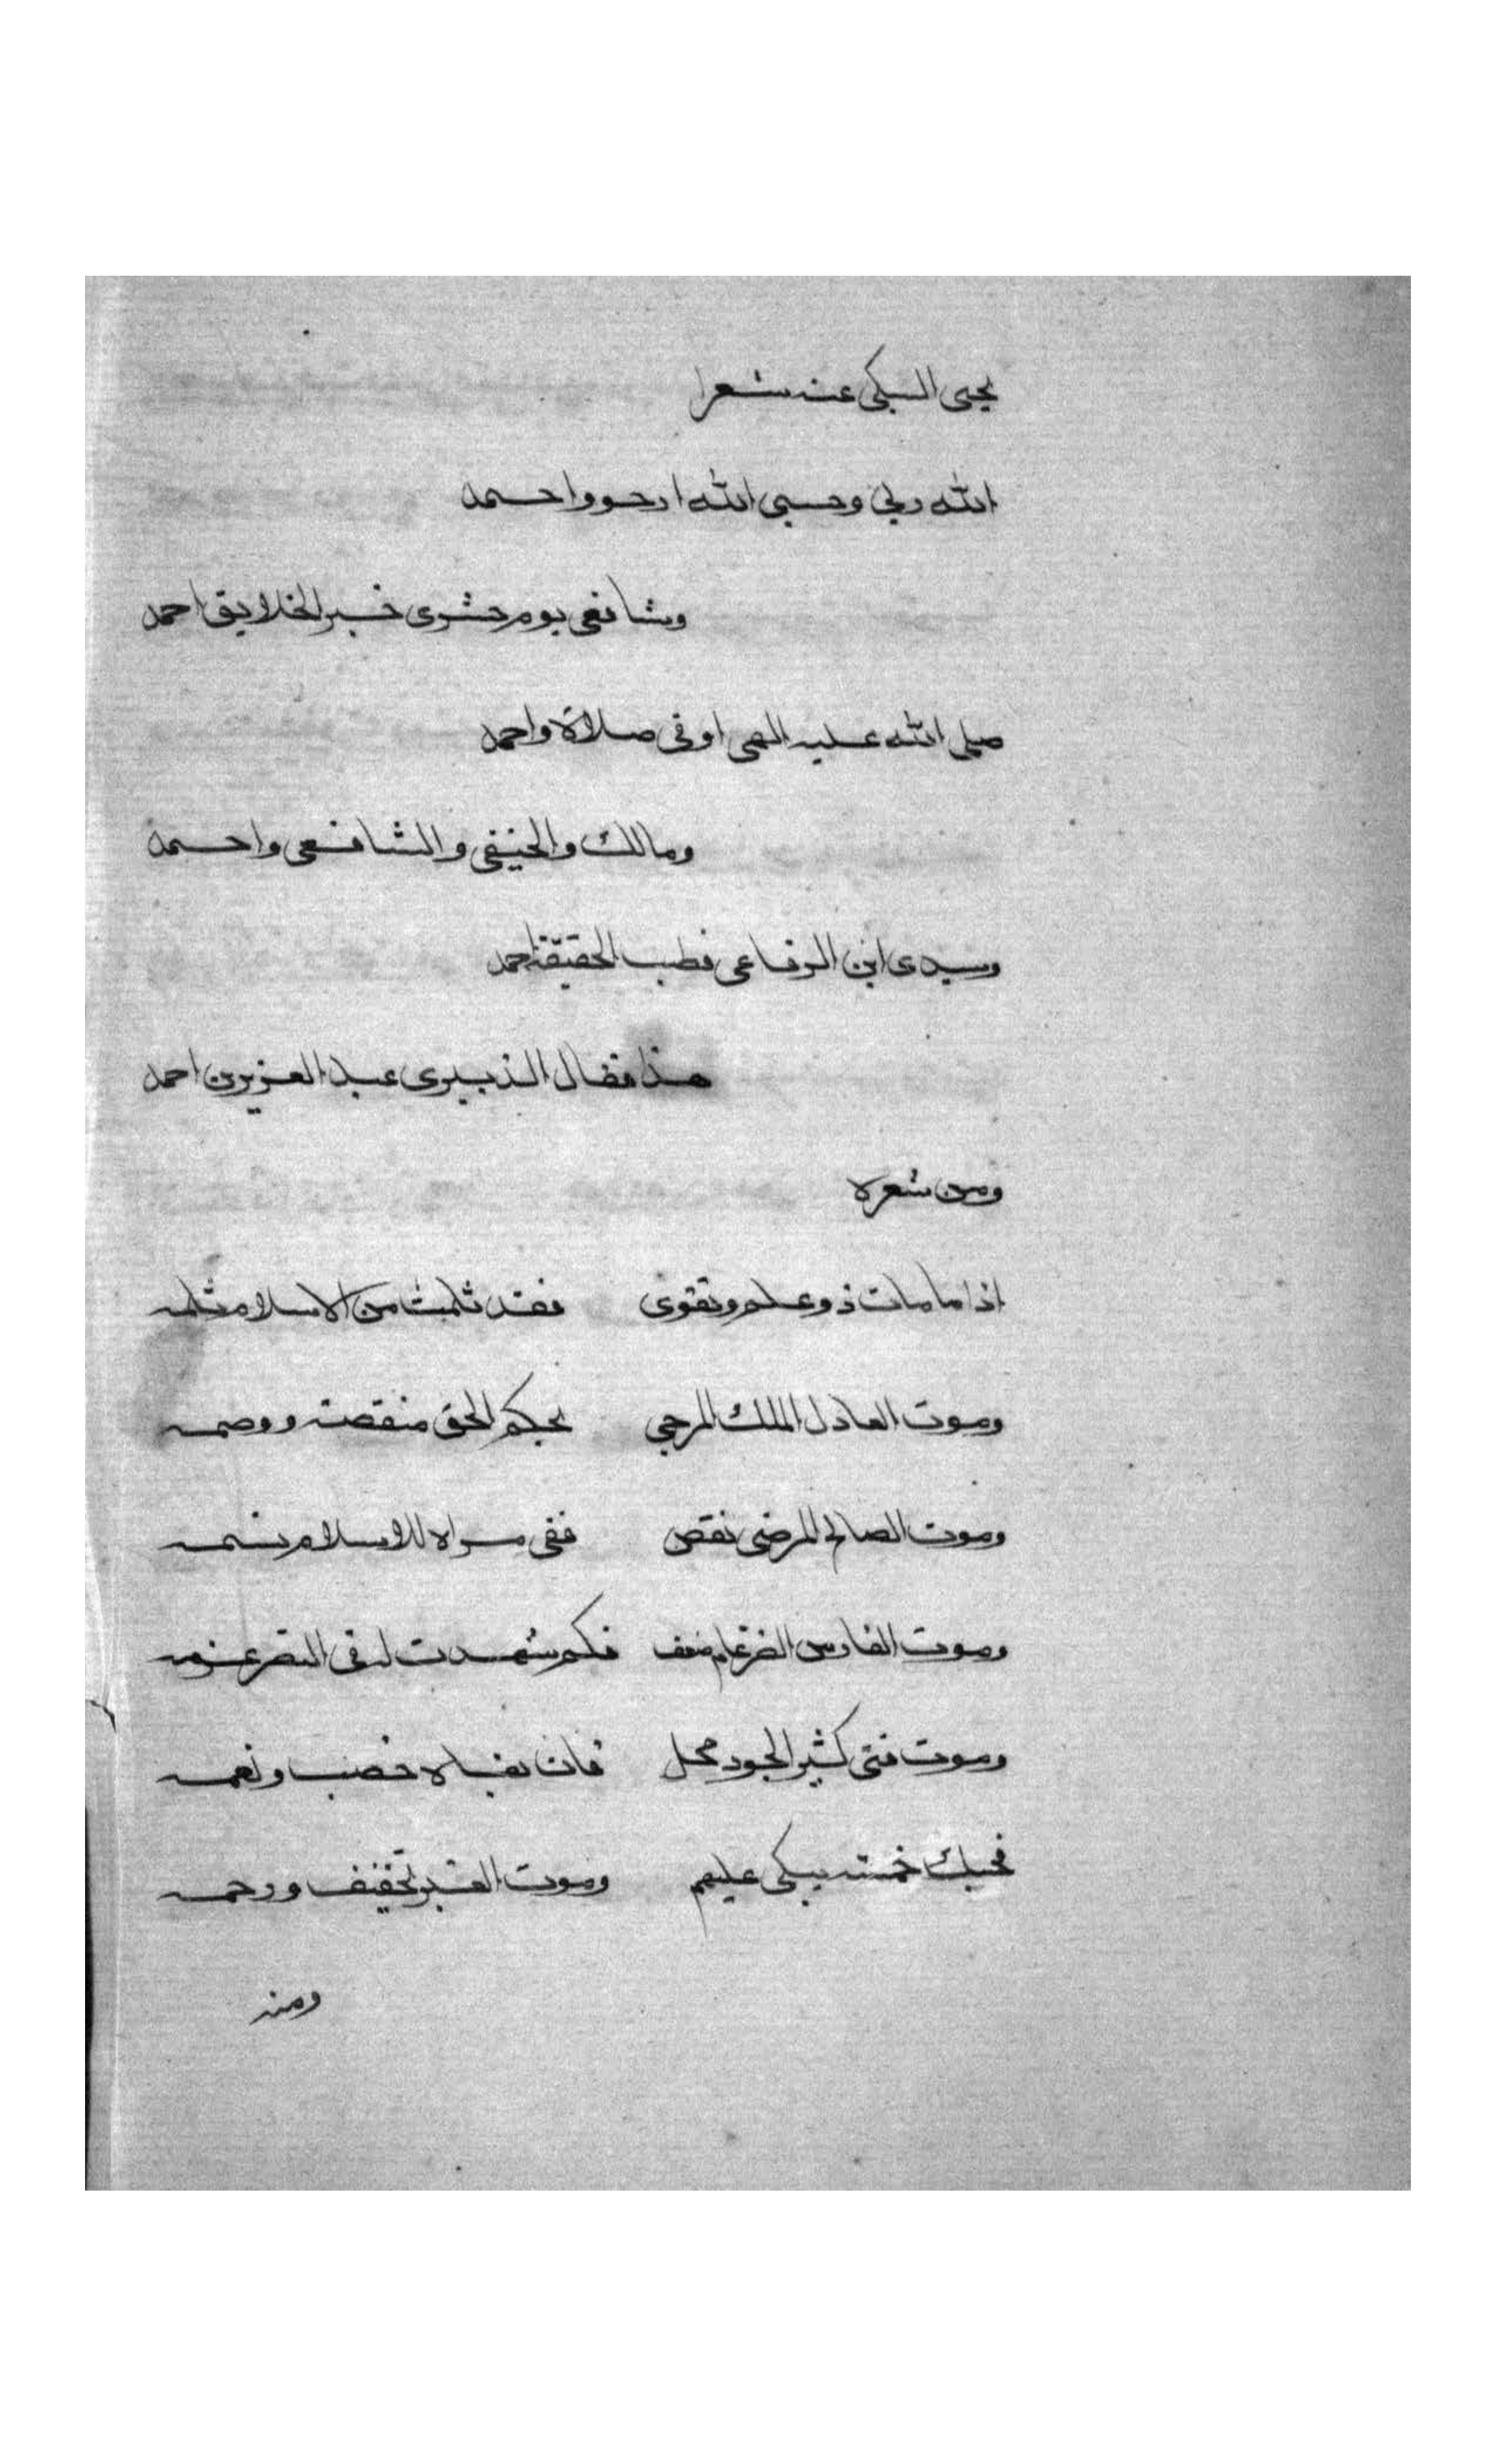 يحيى السبكى عنه شعرا
الله ربى وحسبى الله ارجو واحمد
وشافعى يوم حشرى خير الخلايق احمد
صلى الله عليه الهى اوفى صلاة واحمد
ومالك والحنيفى والشافعى واحمد
وسيدى ابن الرفاعى قطب الحقيقة احمد
هذا مقال الزبيرى عبد العزيز بن احمد
ومن شعره
اذا ما مات ذو علم وتقوى فقد ثلمت من الاسلام ثلمه
وموت العادل الملك المرجى بحكم الحق منقصة ووصمه
وموت الصالح المرضى نقص ففى مراه للاسلام نسمه
وموت الفارس الضرغام ضعف فكم شهدت له فى النصر عزمه
وموت فتى كثير الجود محل فان بقاه خصب ونعمه
فحسبك خمسة يبكى عليهم وموت الغير تخفيف ورحمه
ومنه